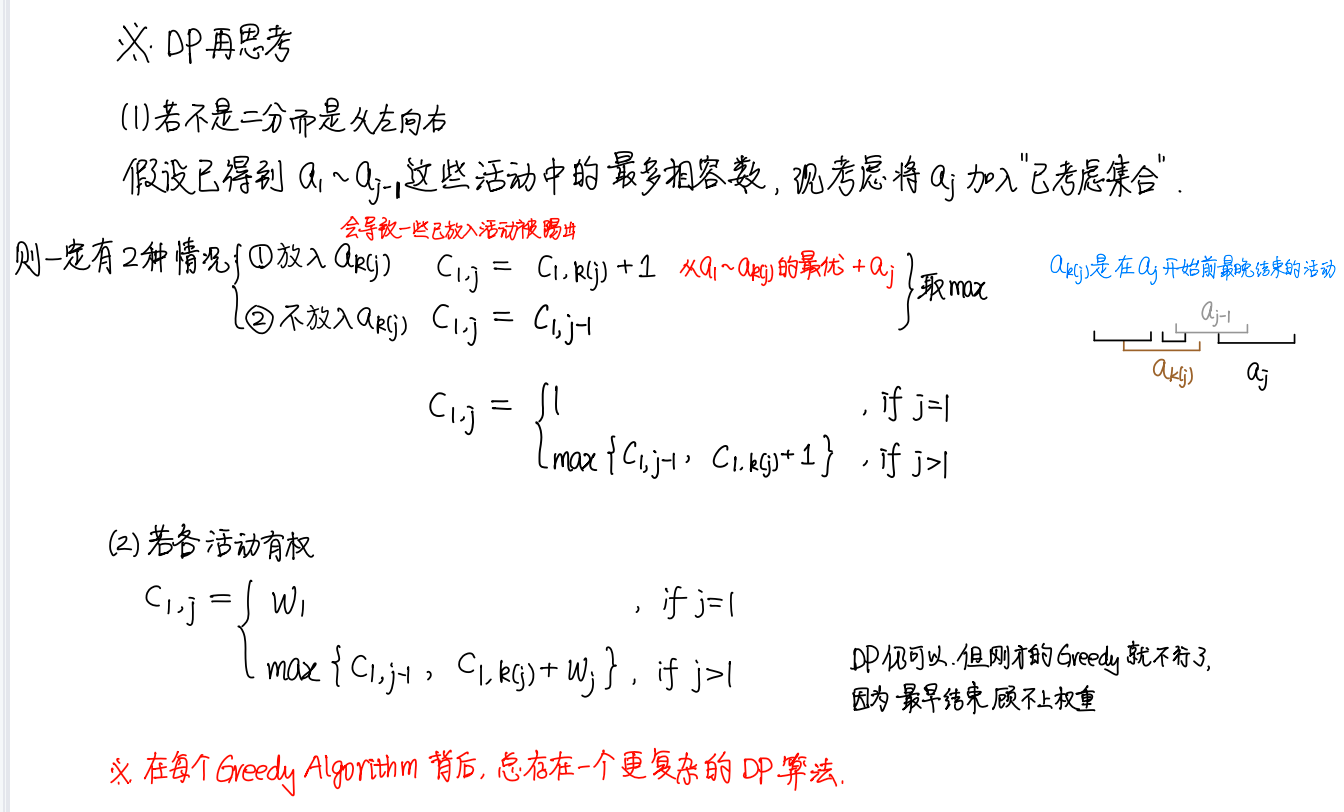 ※. DP再思考
(1)若不是二分而是从左向右
假设已得到 a₁~aⱼ₋₁这些活动中的最多相容数, 现考虑将 aⱼ 加入"已考虑集合".
会导致一些已放入活动被踢出
则一定有2种情况 { ①放入 a_k(j) C₁,ⱼ = C₁,k(j) + 1 从a₁~a_k(j)的最优 + aⱼ
②不放入a_k(j) C₁,ⱼ = C₁,ⱼ₋₁ } 取max
a_k(j)是在aⱼ开始前最晚结束的活动
aⱼ₋₁
a_k(j) aⱼ
C₁,ⱼ = { 1 , if j=1
max { C₁,ⱼ₋₁, C₁,k(j)+1 } , if j>1
(2) 若各活动有权
C₁,ⱼ = { W₁ , if j=1
max { C₁,ⱼ₋₁ , C₁,k(j) + Wⱼ } , if j>1
DP仍可以.但刚才的Greedy就不行了,
因为 最早结束 顾不上权重
※ 在每个Greedy Algorithm 背后, 总存在一个更复杂的DP算法.